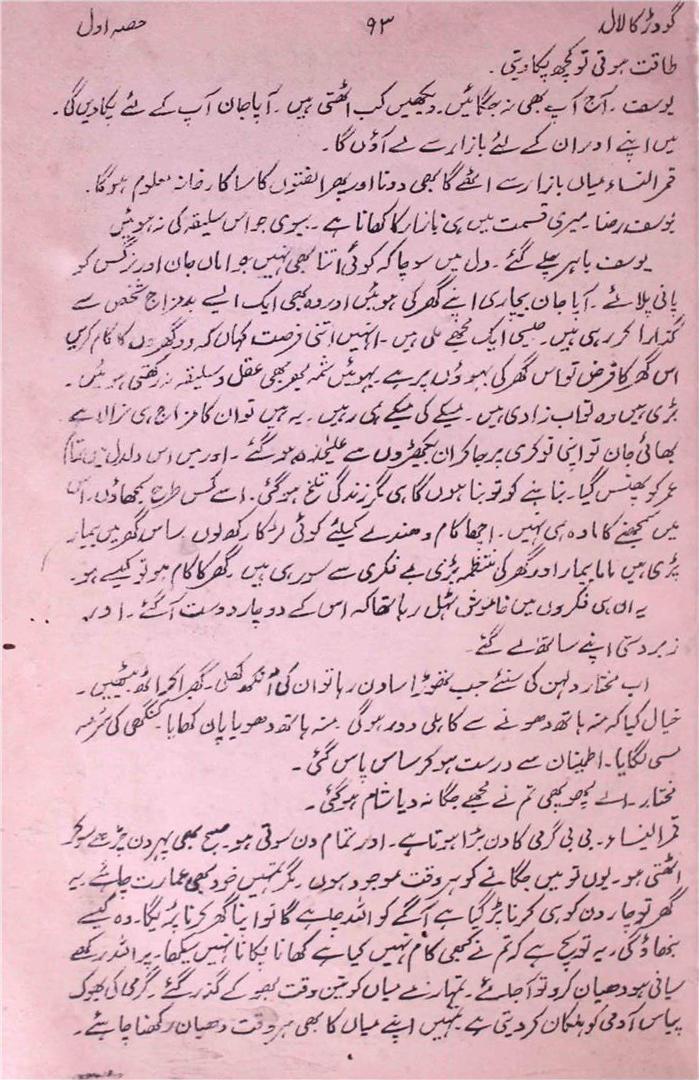 گودڑ کا لال ۹۳ حصہ اول
طاقت ہوتی تو کچھ پکا دیتی۔
یوسف۔ آج آپ بھی نہ جگائیں۔ دیکھیں کب اٹھتی ہیں۔ آپا جان آپ کے لئے پکا دیں گی۔
میں اپنے اور ان کے لئے بازار سے لے آؤں گا۔
قمر النساء میاں بازار سے ائے گا بھی دونا اور پھر الفتوں کا سا کارخانہ معلوم ہوگا۔
یوسف رضا۔ میری قسمت میں ہی بازار کا کھانا ہے۔ بیوی جو اس سلیقہ کی نہ ہوئیں
یوسف باہر چلے گئے۔ دل میں سوچا کہ کوئی اتنا بھی نہیں جو اماں جان اور نرگس کو
پانی پلائے۔ آپا جان بیچاری اپنے گھر کی ہوئیں اور وہ بھی ایک ایسے بدمزاج شخص سے
گذارا کر رہی ہیں۔ جیسی ایک مجھے ملی ہیں۔ انہیں اتنی فرصت کہاں کہ دو گھروں کا کام کریں
اس گھر کا فرض تو اس گھر کی بہوؤں پر ہے۔ بہوئیں شمہ بھر بھی عقل و سلیقہ نہ رکھتی ہوئیں۔
بڑی ہیں وہ نواب زادی ہیں۔ میکے کی میکے ہی رہیں۔ یہ ہیں تو ان کا مزاج ہی نرالا ہے۔
بھائی جان تو اپنی نوکری پر جا کر ان بکھیڑوں سے علیحدہ ہو گئے۔ اور میں اس دلدل میں
عمر کو پھنس گیا۔ بنا ہنے کو تو بنا ہوں گا ہی مگر زندگی تلخ ہو گئی۔ اسے کس طرح سمجھاؤں۔ اس
میں سمجھنے کا مادہ ہی نہیں۔ اچھا کام دھندے کیلئے کوئی لڑکا رکھ لوں۔ ساس گھر میں بیمار
پڑی ہیں ماما بیمار اور گھر کی منتظمہ بڑی بے فکری سے سو رہی ہیں۔ گھر کا کام ہو تو کیسے ہو۔
یہ ان ہی فکروں میں خاموش ٹہل رہا تھا کہ اس کے دو چار دوست آ گئے۔ اور
زبردستی اپنے ساتھ لے گئے۔
اب مختار دلہن کی سنئے جب تھوڑا سا دن رہا تو ان کی آنکھ کھلی۔ گھبرا کر اٹھ بیٹھیں۔
خیال کیا کہ منہ ہاتھ دھونے سے کاہلی دور ہوگی۔ منہ ہاتھ دھویا پان کھایا۔ کنگھی کی سرمہ
مسی لگایا۔ اطمینان سے درست ہو کر ساس پاس گئی۔
مختار۔ اے پھوپھی تم نے مجھے جگا نہ دیا شام ہو گئی۔
قمر النساء۔ بی بی گرمی کا دن بڑا ہوتا ہے۔ اور تمام دن سوتی ہو۔ صبح بھی پہر دن چڑھے سو کر
اٹھتی ہو۔ یوں تو میں جگانے کو ہر وقت موجود ہوں۔ مگر تمہیں خود بھی عبارت چاہئے۔ یہ
گھر تو چار دن کو ہی کرنا پڑ گیا ہے آگے کو اللہ چاہے گا تو اپنا گھر کرنا پڑیگا۔ وہ کیسے
نبھاؤ گی، یہ تو سچ ہے کہ تم نے کبھی کام نہیں کیا ہے کھانا پکانا نہیں سیکھا۔ پر اللہ رکھے
سیانی ہو دھیان کرو تو آ جائے۔ تمہارے میاں کو تین وقت بھوکے گذر گئے۔ گرمی کی بھوک
پیاس آدمی کو ہلکان کر دیتی ہے۔ تمہیں اپنے میاں کا بھی ہر وقت دھیان رکھنا چاہئے۔